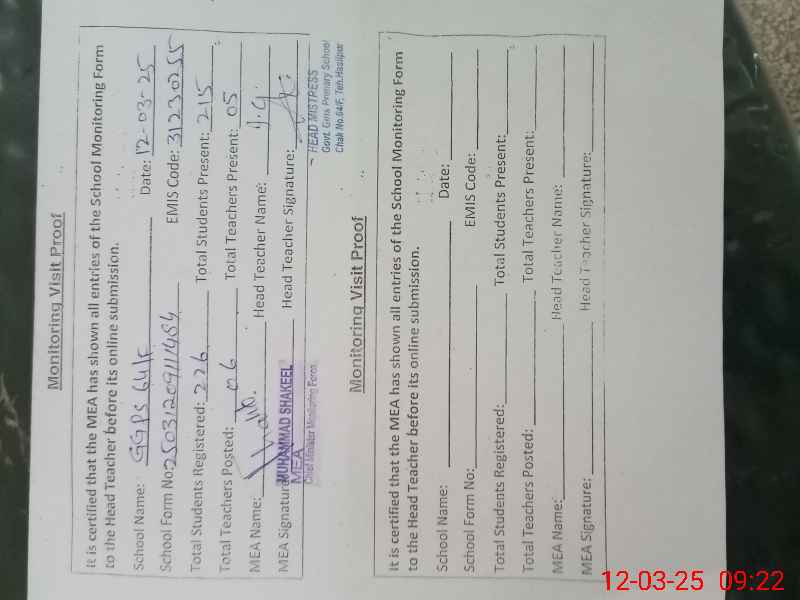 Monitoring Visit Proof
It is certified that the MEA has shown all entries of the School Monitoring Form
to the Head Teacher before its online submission.
School Name: GGPS 64/F Date: 12-03-25
School Form No: 250312091111484 EMIS Code: 31230255
Total Students Registered: 226 Total Students Present: 215
Total Teachers Posted: 06 Total Teachers Present: 05
MEA Name: Head Teacher Name:
MEA Signature Head Teacher Signature:
MUHAMMAD SHAKEEL
MEA
Chief Minister Monitoring Force
HEAD MISTRESS
Govt. Girls Primary School
Chak No.64/F, Teh.Hasilpur
Monitoring Visit Proof
It is certified that the MEA has shown all entries of the School Monitoring Form
to the Head Teacher before its online submission.
School Name: Date:
School Form No: EMIS Code:
Total Students Registered: Total Students Present:
Total Teachers Posted: Total Teachers Present:
MEA Name: Head Teacher Name:
MEA Signature: Head Teacher Signature:
12-03-25 09:22